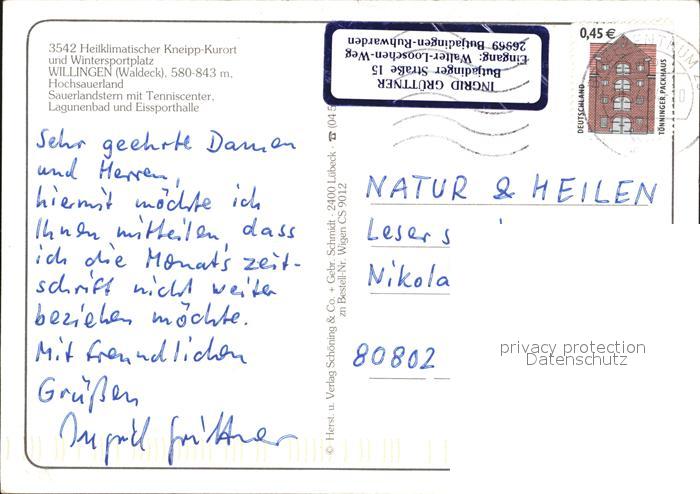 3542 Heilklimatischer Kneipp-Kurort
und Wintersportplatz
WILLINGEN (Waldeck), 580-843 m,
Hochsauerland
Sauerlandstern mit Tenniscenter,
Lagunenbad und Eissporthalle
Sehr geehrte Damen
und Herren,
hiermit möchte ich
Ihnen mitteilen, dass
ich die Monatszeit-
schrift nicht weiter
beziehen möchte.
Mit freundlichen
Grüßen
Ingrid Grüttner
© Herst. u. Verlag Schöning & Co. + Gebr. Schmidt · 2400 Lübeck · ☎ (04 5
zu Bestell-Nr. Wigen CS 9012
INGRID GRÜTTNER
Butjadinger Straße 15
Eingang: Walter-Looschen-Weg
26969 Butjadingen-Ruhwarden
0,45 €
DEUTSCHLAND
TÖNNINGER PACKHAUS
NATUR & HEILEN
Lesers
Nikola
80802
privacy protection
Datenschutz